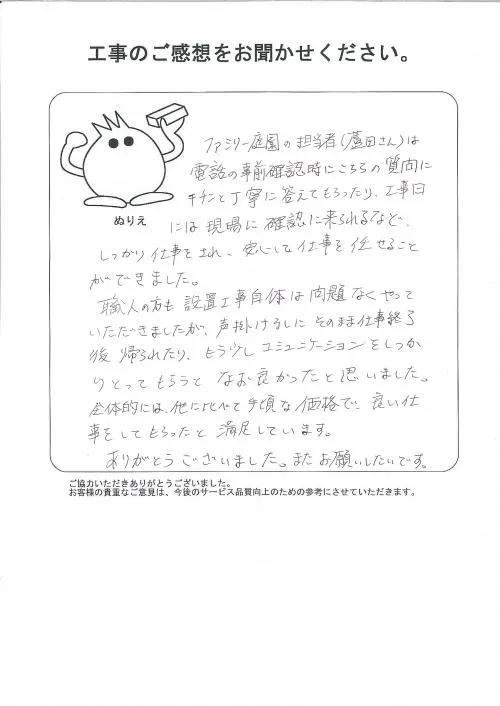 工事のご感想をお聞かせください。
ファミリー庭園の担当者(廬田さん)は
電話の事前確認時にこちらの質向に
キチンと丁寧に答えてもらったり、工事日
には現場に確認に来られるなど、
ぬりえ
しっかり仕事をされ、安心して仕事を任せること
ができました。
職人の方も設置工事自体は問題なくやって
いただきましたが、声掛けなしにそのまま仕事終了
後帰られたり、もう少しコミュニケーションをしっか
りとってもらうとなお良かったと思いました。
全体的には、他に比べて手頃な価格で、良い仕
事をしてもらったと満足しています。
ありがとうございました。またお願いしたいです。
ご協力いただきありがとうございました。
お客様の貴重なご意見は、今後のサービス品質向上のための参考にさせていただきます。